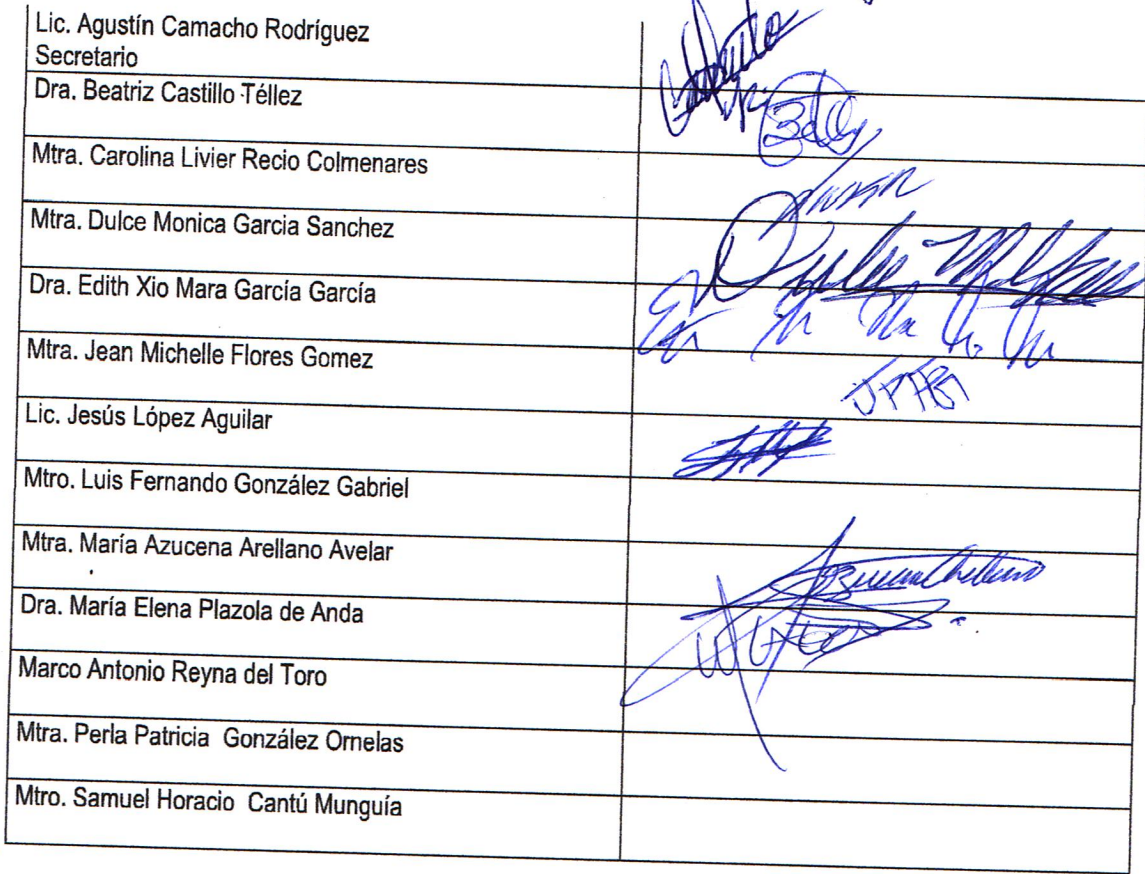 Lic. Agustín Camacho Rodríguez
Secretario
Dra. Beatriz Castillo Téllez
Mtra. Carolina Livier Recio Colmenares
Mtra. Dulce Monica Garcia Sanchez
Dra. Edith Xio Mara García García
Mtra. Jean Michelle Flores Gomez
Lic. Jesús López Aguilar
Mtro. Luis Fernando González Gabriel
Mtra. María Azucena Arellano Avelar
Dra. María Elena Plazola de Anda
Marco Antonio Reyna del Toro
Mtra. Perla Patricia González Ornelas
Mtro. Samuel Horacio Cantú Munguía